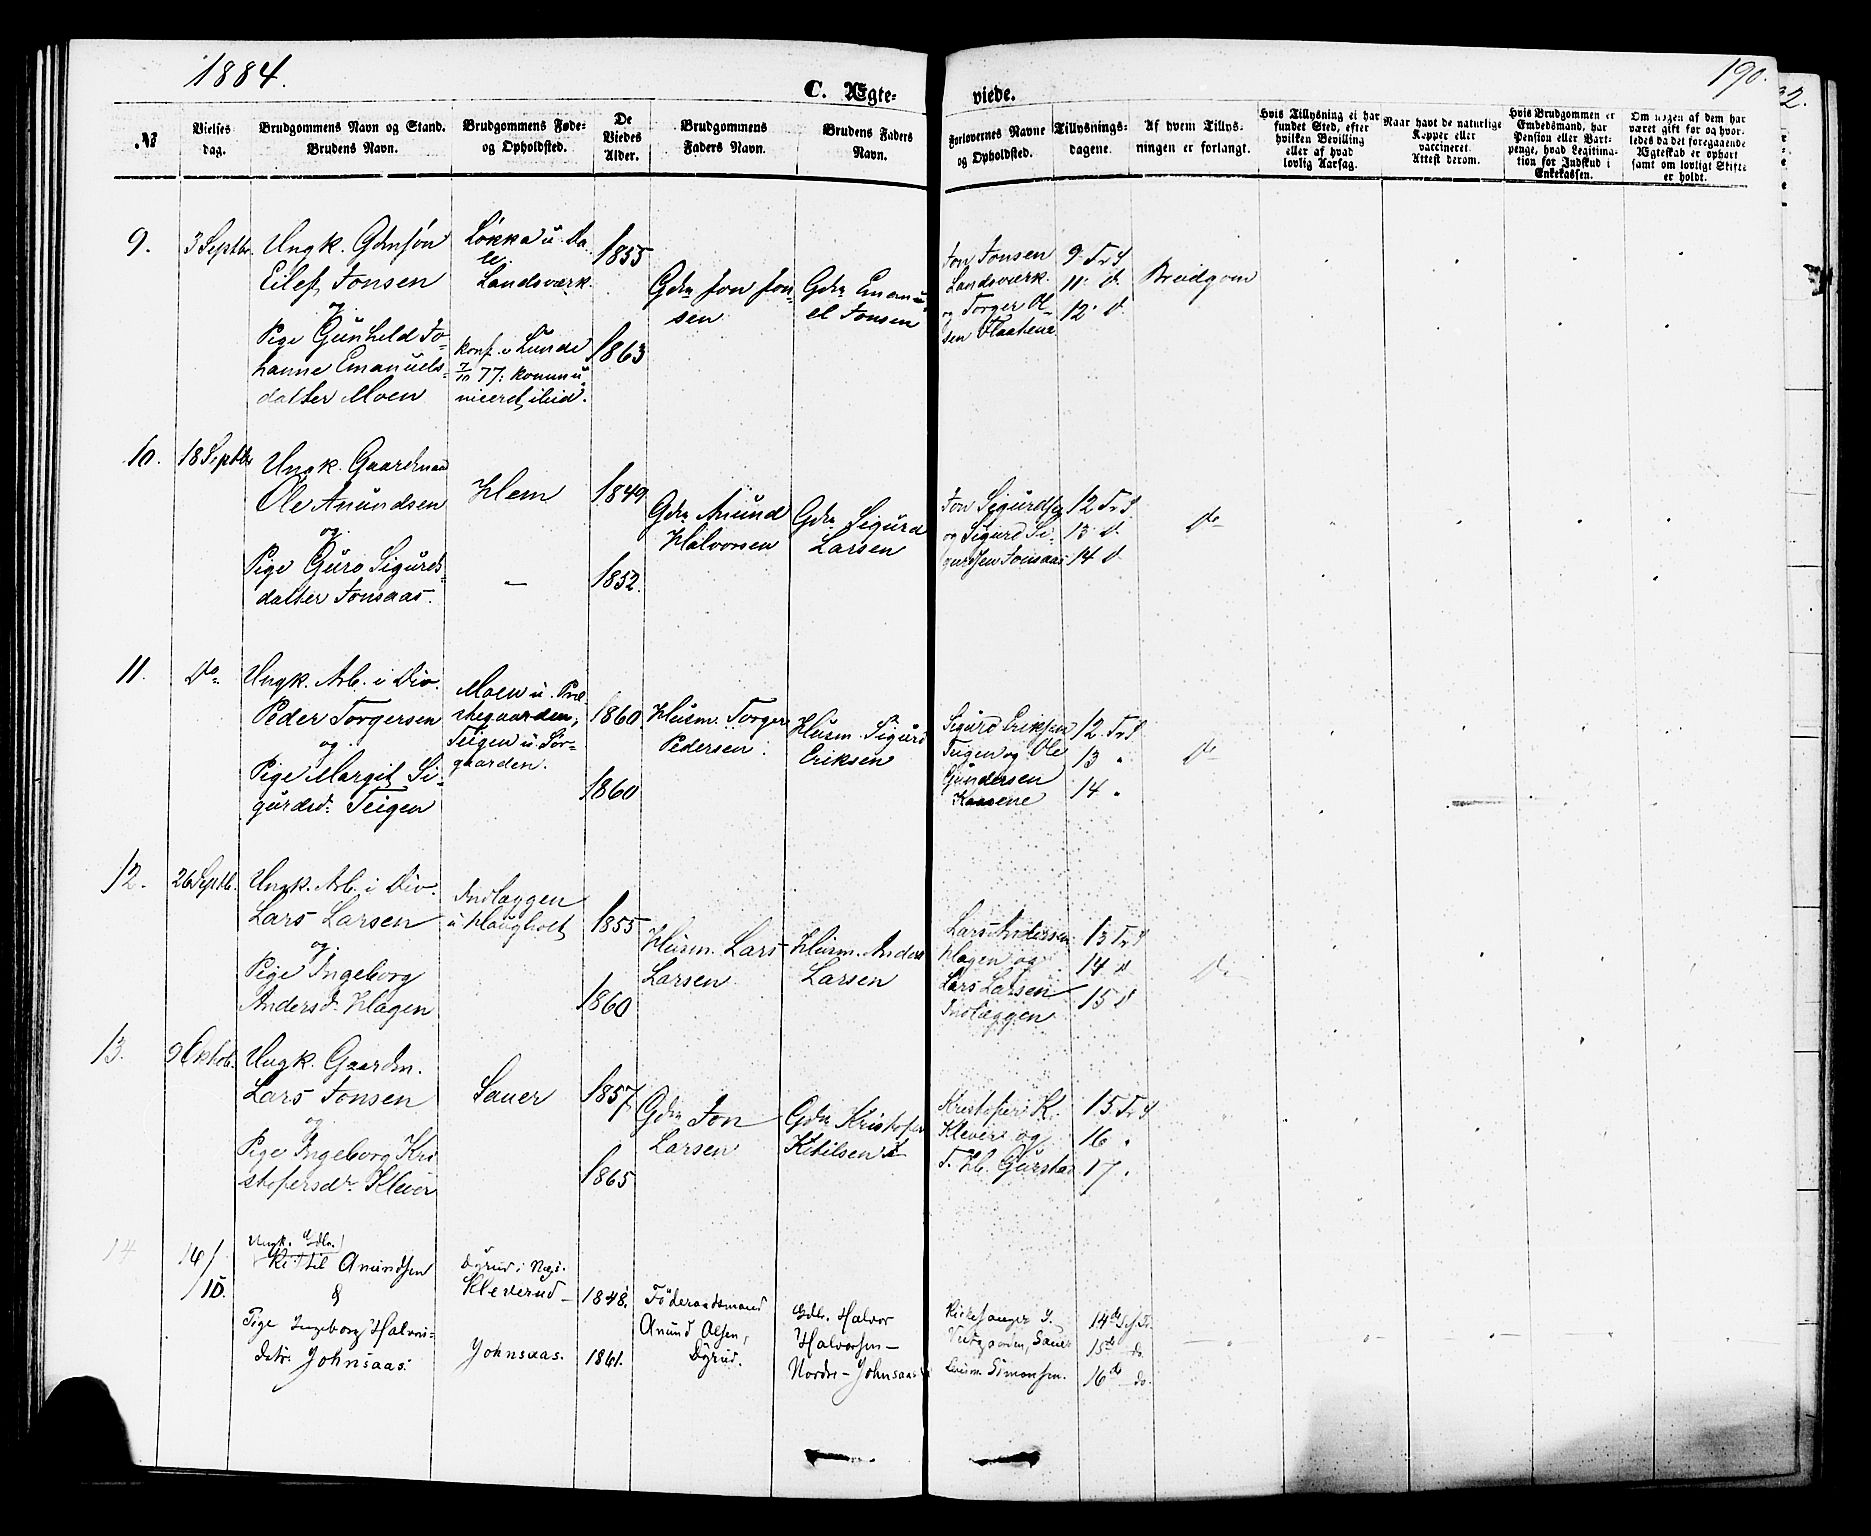 1884.
190.
C. Ægte-
viede.
№
Vielses
dag.
Brudgommens Navn og Stand.
Brudens Navn.
Brudgommens Føde-
og Opholdsted.
De
Viedes
Alder.
Brudgommens
Faders Navn.
Brudens Faders
Navn.
Forlovernes Navne
og Opholdsted.
Tillysnings-
dagene.
Af hvem Tillys-
ningen er forlangt.
Hvis Tillysning ei har
fundet Sted, efter
hvilken Bevilling
eller af hvad
lovlig Aarsag.
Naar havt de naturlige
Kopper eller
vaccineret.
Attest derom.
Hvis Brudgommen er
Embedsmand, har
Pension eller Vart-
penge, hvad Legitima-
tion for Indskud i
Enkekassen.
Om nogen af dem har
været gift før og hvor-
ledes da det foregaaende
Ægteskab er ophørt
samt om lovligt Skifte
er holdt.
9.
3 Septbr.
Ungk. Gdmsøn
Eilef Jonsen
og
Pige Gunhild Jo-
hanne Emanuels-
datter Moen
Løkka u. Da
le
Landsværk.
konf. i Lunde
7/10 77: kommu
niceret ibid.
1855
1863
Gdm Jon Jon-
sen
Gdm Emanu
el Jonsen
Jon Jonsen
Landsværk
og Torger Ol-
sen Flaatene
9. Tr S
11. d.
12. d
Breidgom
10.
18 Septbr
Ungk. Gaardmand
Ole Anundsen
og
Pige Guro Sigurds-
datter Jonsaas.
Hem
-
1849
1852.
Gdm Anund
Halvorsen
Gdm Sigurd
Larsen
Jon Sigurdsen
og Sigurd Si-
gurdsen Jonsaas
12 Tr S
13 d.
14 d
Do
11.
Do
Ungk. Arb. i Div.
Peder Torgersen
og
Pige Margit Si-
gurdsd. Teigen
Moen u. Præ
stegaarden,
Teigen u. Sør-
gaarden.
1860
1860
Husm. Torger
Pedersen.
Husm. Sigurd
Eriksen
Sigurd Eriksen
Teigen og Ole
Gundersen
Kaasene
12. Tr S
13 "
14 "
Do
12.
26 Septb.
Ungk. Arb. i Div.
Lars Larsen
og
Pige Ingeborg
Andersd. Hagen
Indlæggen
u Haugholt
1855
1860
Husm. Lars
Larsen
Husm. Anders
Larsen
Lars Andersen
Hagen og
Lars Larsen
Indlæggen
13 Tr S
14 d
15 d
Do
13.
9 Oktob.
Ungk. Gaardm.
Lars Jonsen
og
Pige Ingeborg Kri
stofersdr. Klever
Sauer
1857
1865
Gdm Jon
Larsen
Gdm Kristofer
Kittilsen
Kristofer K.
Klever og
T. H. Gurstad
15. Tr S
16 "
17 "
14
16/
/10.
Ungk. Gdbr.
Kittil Anundsen
&
Pige Ingeborg Halvors-
datr. Johnsaas.
Dyrud i Næs.
Kleverud -
Johnsaas.
1848.
1861.
Föderaadsmand
Anund Olsen,
Dyrud.
Gdbr. Halvor
Halvorsen -
Nordre - Johnsaas
Kirkesanger
Sauer
Simonsen.
14de S. e. Tr.
15de do.
16de do.